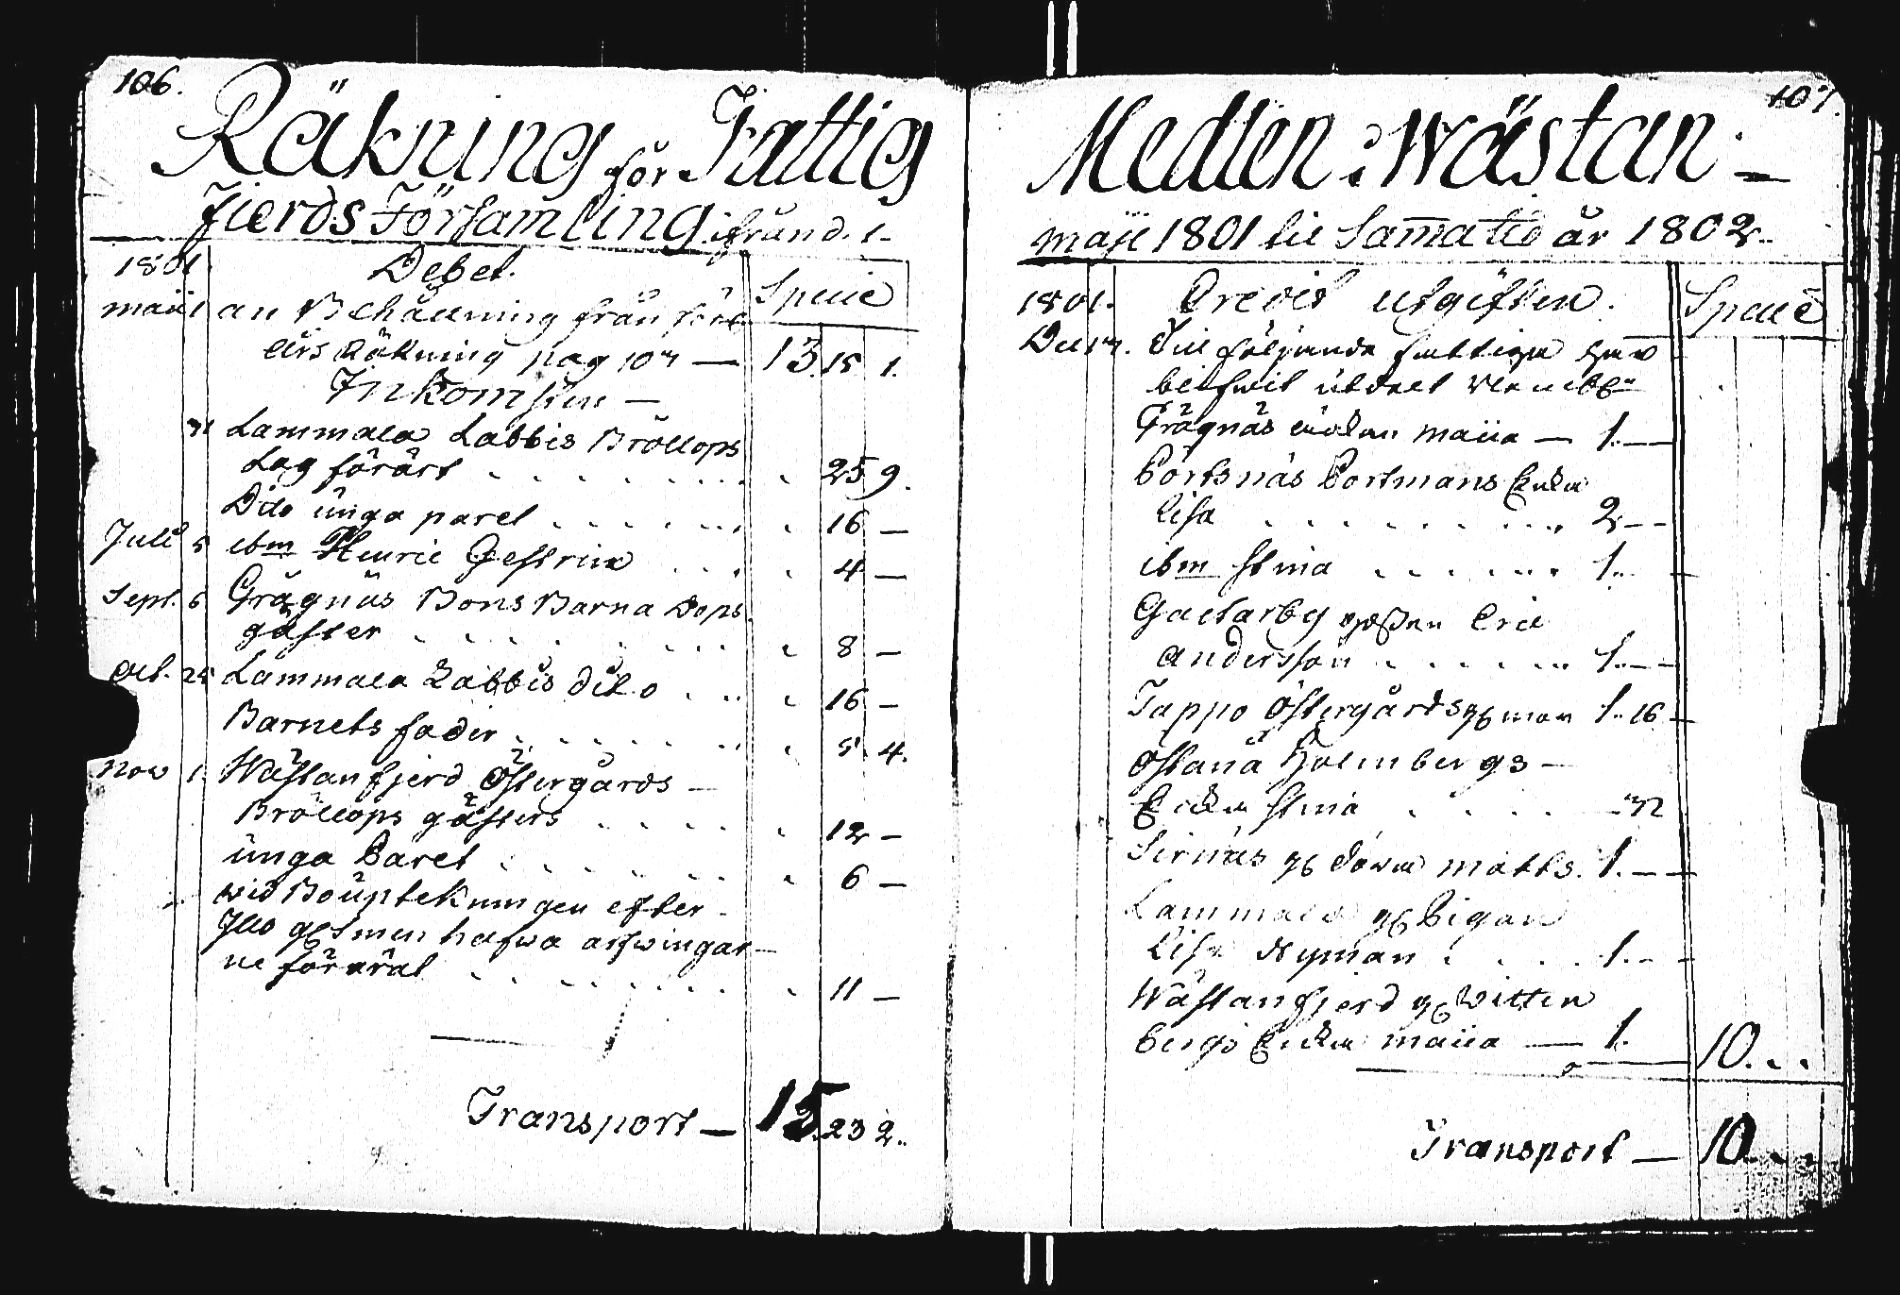 106.
Räkning för Fattig
Fierds Församling ifrån d. 1.
1801 Debet. Specie
maii 1 an Behållning från förl.
års Räkning pag 107 — 13. 15 1.
Inkomsten —
31 Lammala Labbis Bröllops
Lag förärt . . . . . . . . 25 9.
Dito unga paret . . . . . . . 16 —
Julii 5 ibm Henric Gestrin . . . . 4 —
Sept. 6 Grägnäs Bons Barna Dops
gäster . . . . . . . . . 8 —
Oct. 25 Lammala Labbis dito . . . . 16 —
Barnets fader . . . . . . . 5 4.
Nov 1. Wästanfjerd Östergårds —
Bröllops gästers . . . . . 12 —
unga Paret . . . . . . . 6 —
wid Boupteckningen efter
hafwa arfwingar-
ne förärat . . . . . . . . 11 —
Transport — 15. 23 2..
107.
Medlen i Wästan —
maji 1801 til Samma tid år 1802..
1801. Credit utgiften. Specie
Dec. Till följande fattiga
blifwit utdelt
Grägnäs Enkan maija — 1. — —
Börtsnäs Portmans Enka
Lisa . . . . . . . . . . 2 — —
ibm Stina . . . . . . . 1..
Galtarby gossen Eric
andersson . . . . . . . 1. — —
Tappo Östergårds 1.. 16 —
Östanå Holmbergs —
Enka Stina . . . . . — 32
Sirnäs matts. 1. — —
Lammala Pigan
Lisa Nyman . . . . 1. — —
Wästanfjerd Witten
bergs Enka maija — 1. 10. . .
Transport — 10. . .